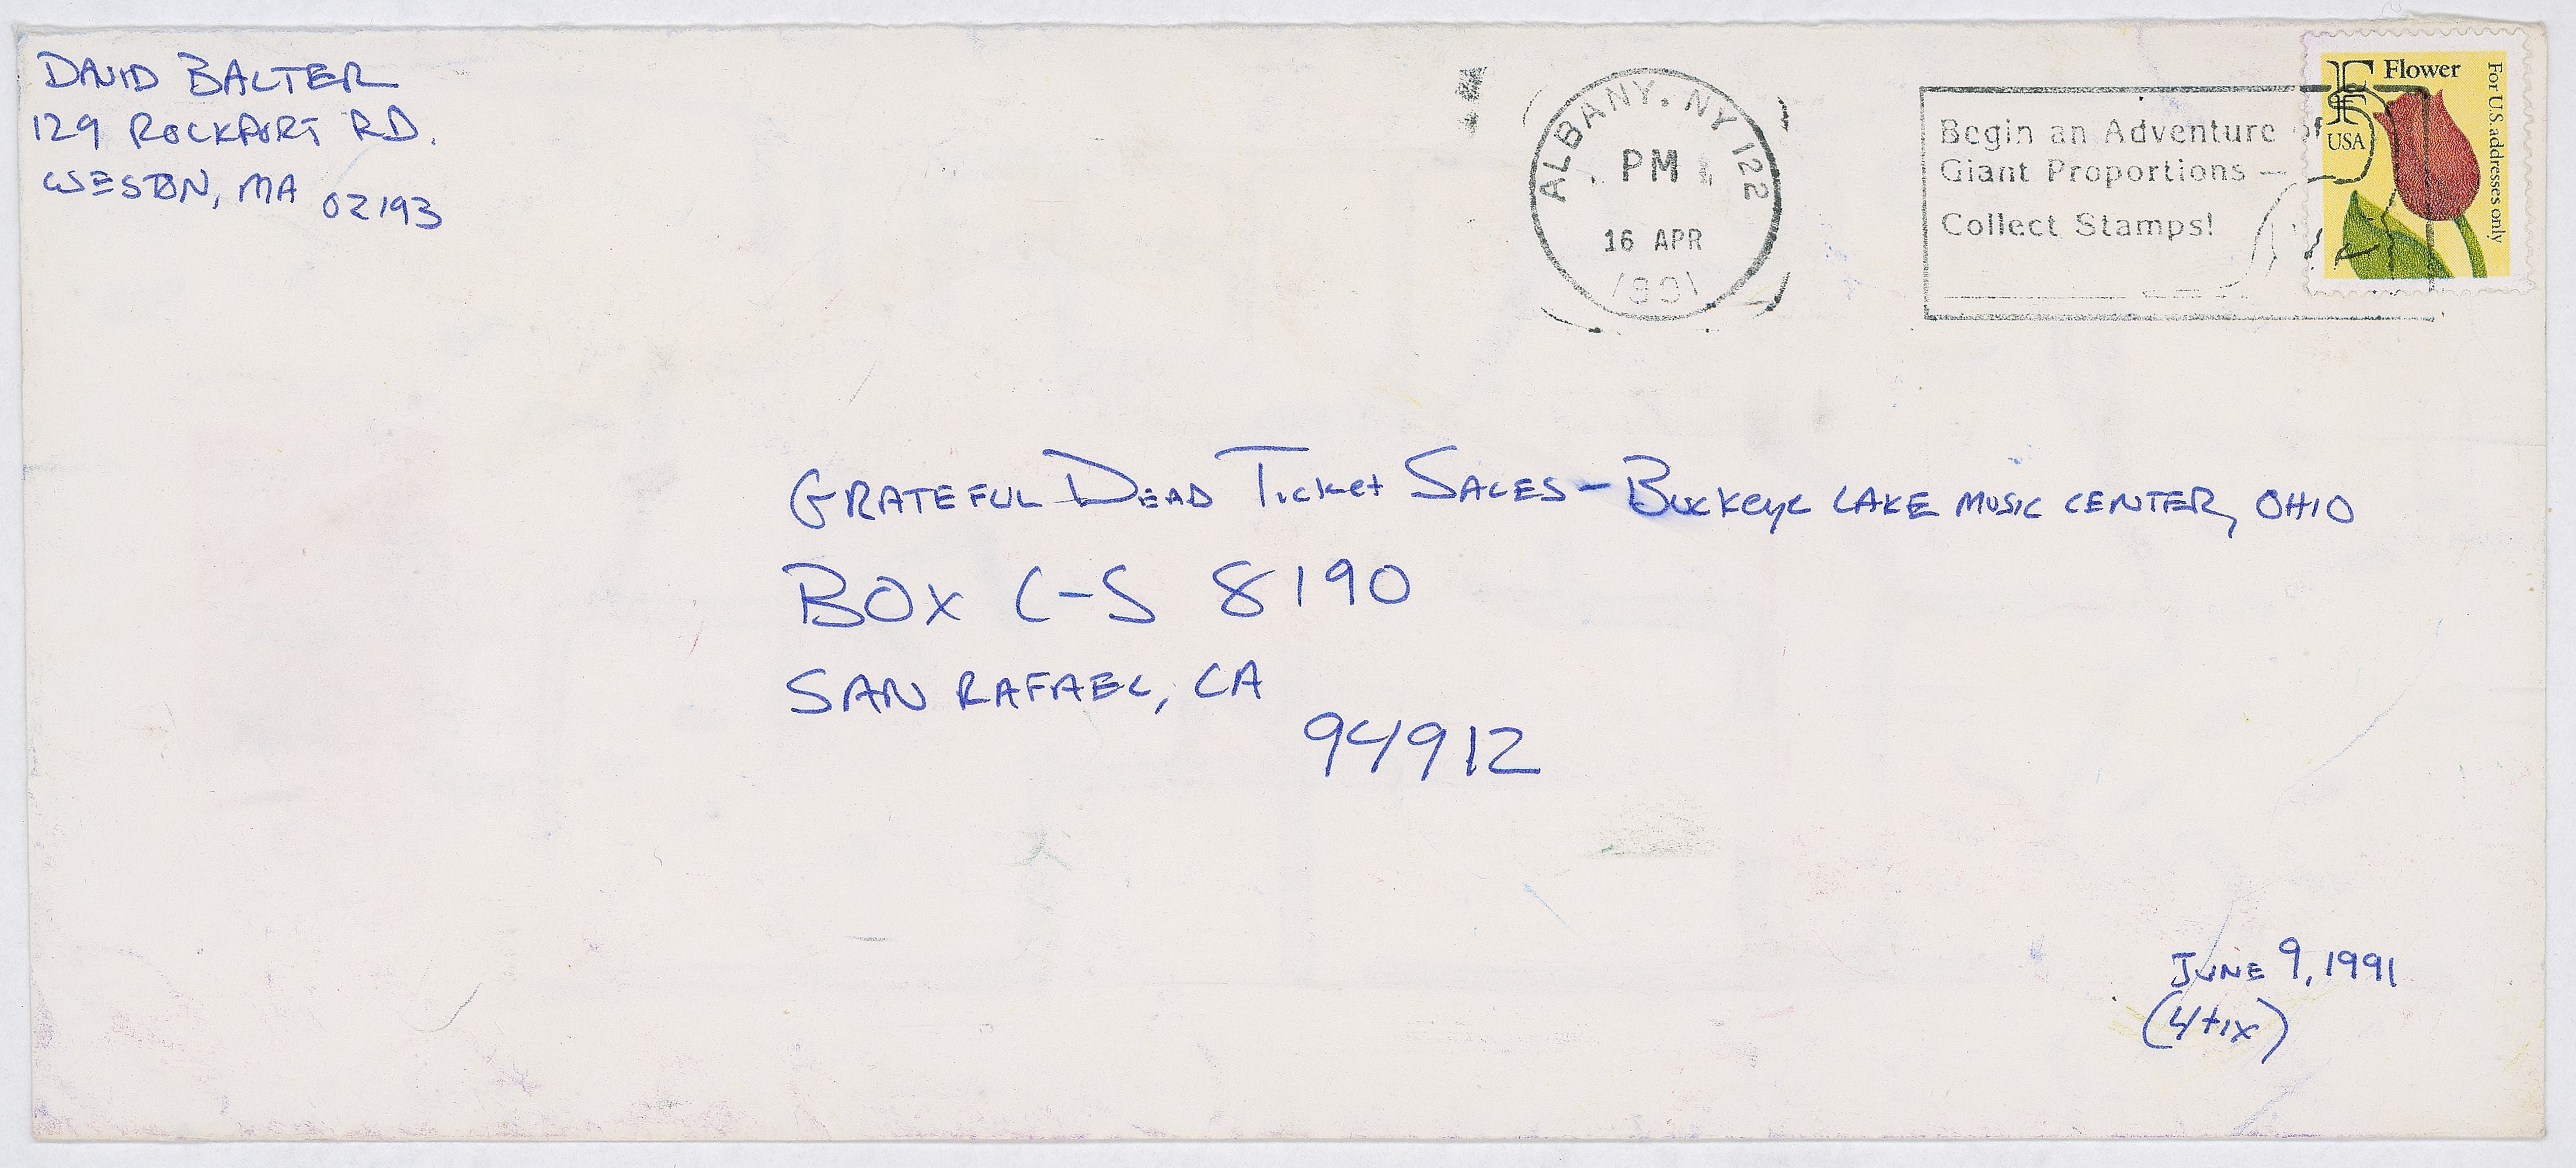 DAVID BALTER
129 ROCKPORT RD.
WESTON, MA 02193
ALBANY, NY 122
PM
16 APR
1991
Begin an Adventure of
Giant Proportions —
Collect Stamps!
F Flower
USA
For U.S. addresses only
GRATEFUL DEAD Ticket SALES - Buckeye LAKE MUSIC CENTER, OHIO
BOX C-S 8190
SAN RAFAEL, CA
94912
JUNE 9, 1991
(4 tix)